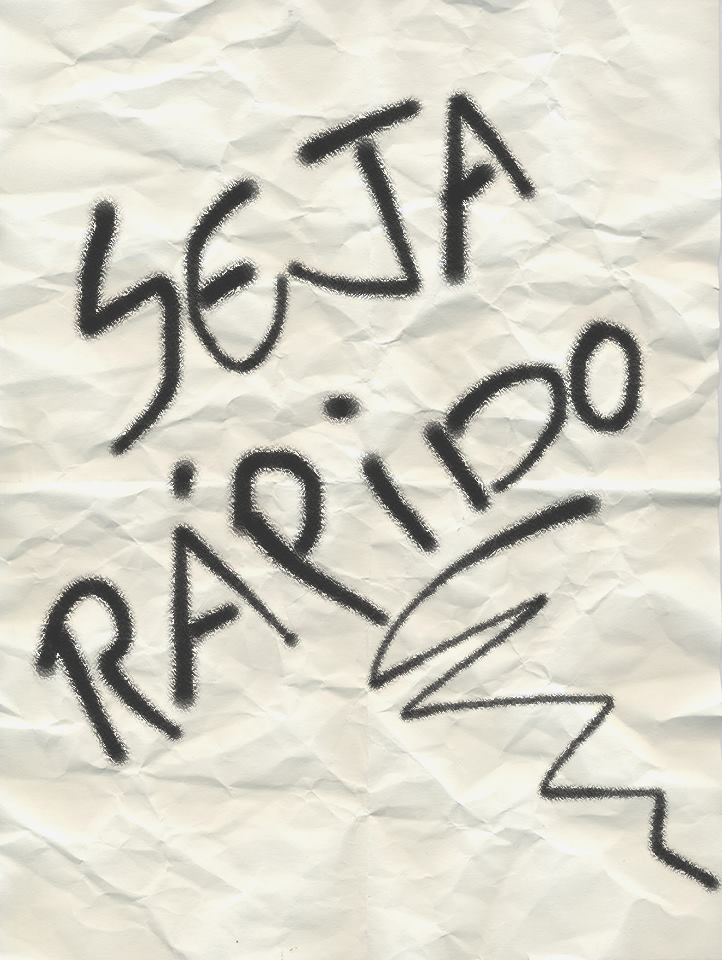 SEJA
RÁPIDO